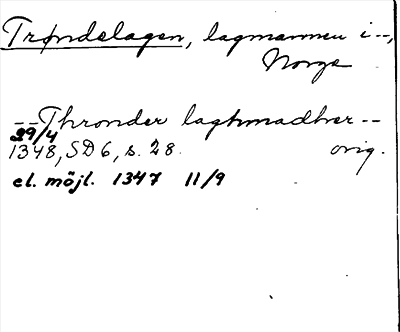 Trøndelagen, lagmannen i --,
Norge
-- Thronder laghmadher --
29/4
1348, SD 6, s. 28. orig.
el. möjl. 1347 11/9